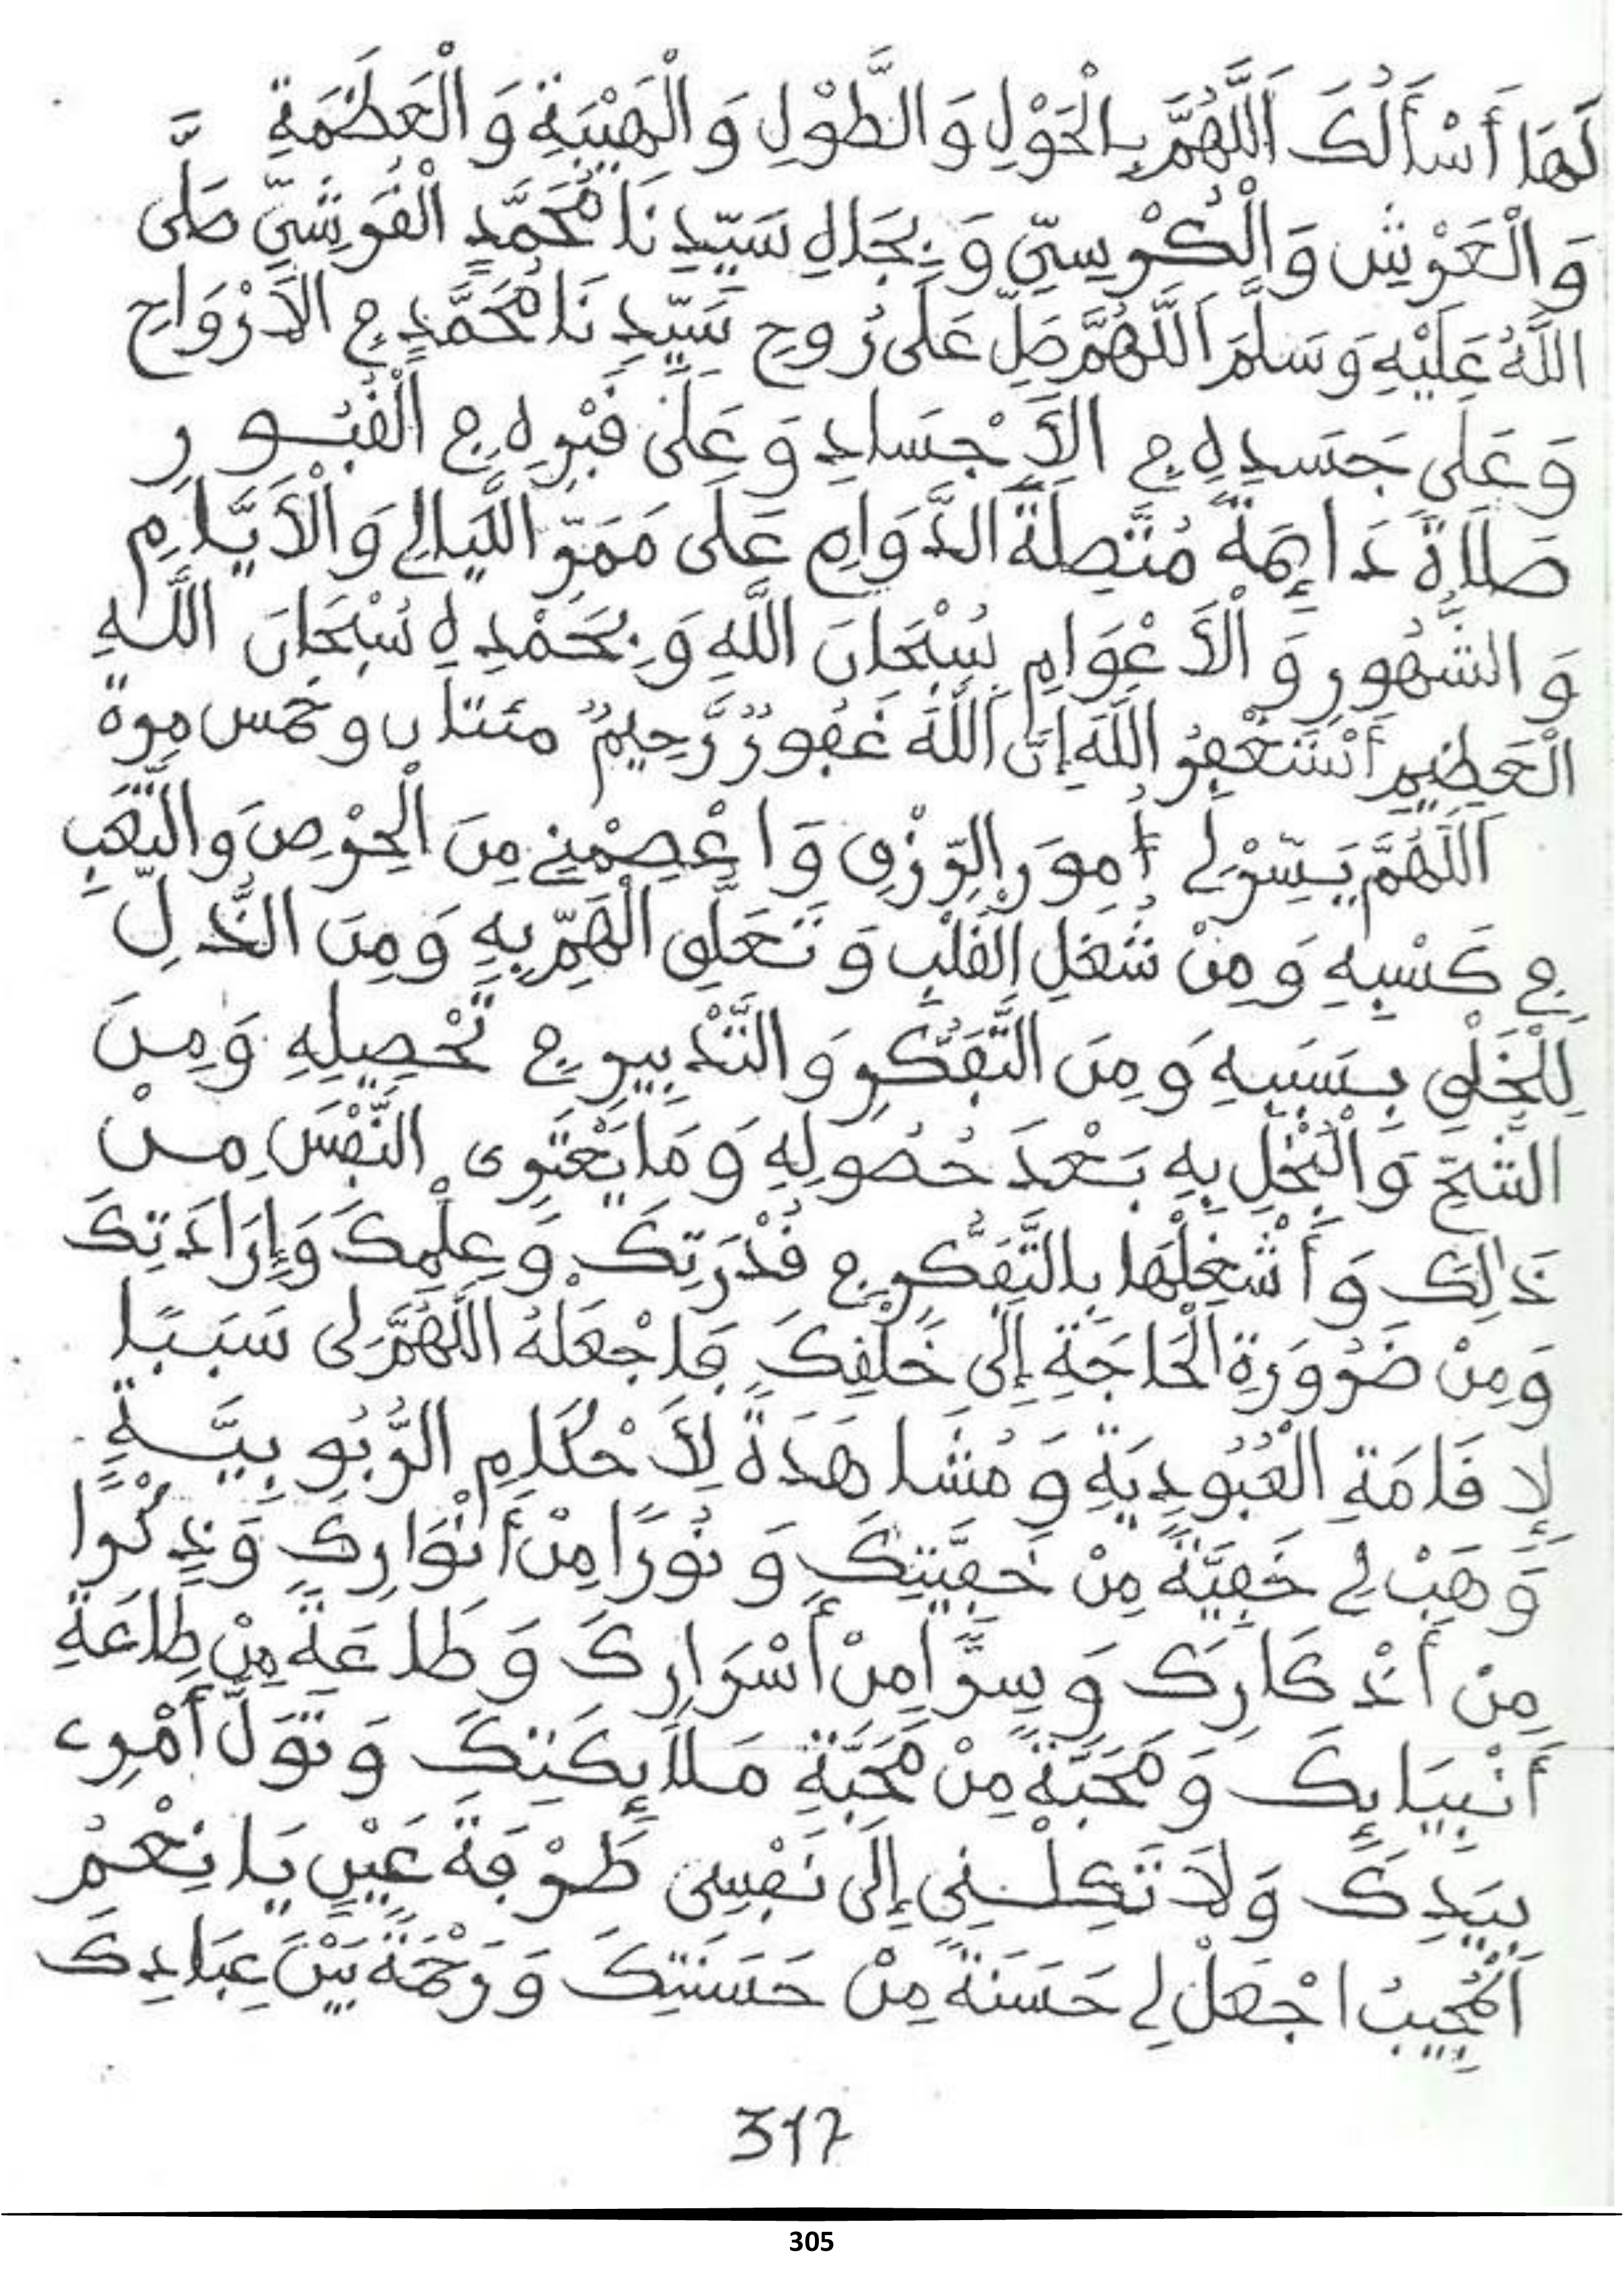 لَهَا أَسْأَلُكَ اَللَّهُمَّ بِالْحَوْلِ وَالطَّوْلِ وَالْهَيْبَةِ وَالْعَظَمَةِ
وَالْعَرْشِ وَالْكُرْسِيِّ وَبِجَاهِ سَيِّدِنَا مُحَمَّدٍ الْقُرَشِيِّ صَلَّى
اللَّهُ عَلَيْهِ وَسَلَّمَ اَللَّهُمَّ صَلِّ عَلَى رُوحِ سَيِّدِنَا مُحَمَّدٍ فِي الْأَرْوَاحِ
وَعَلَى جَسَدِهِ فِي الْأَجْسَادِ وَعَلَى قَبْرِهِ فِي الْقُبُورِ
صَلَاةً دَائِمَةً مُتَّصِلَةَ الدَّوَامِ عَلَى مَمَرِّ اللَّيَالِي وَالْأَيَّامِ
وَالشُّهُورِ وَالْأَعْوَامِ سُبْحَانَ اللَّهِ وَبِحَمْدِهِ سُبْحَانَ اللَّهِ
الْعَظِيمِ أَسْتَغْفِرُ اللَّهَ إِنَّ اللَّهَ غَفُورٌ رَّحِيمٌ مئتان وخمس مرة
اَللَّهُمَّ يَسِّرْ لِي أُمُورَ الرِّزْقِ وَاعْصِمْنِي مِنَ الْحِرْصِ وَالتَّعَبِ
فِي كَسْبِهِ وَمِنْ شُغْلِ الْقَلْبِ وَتَعَلُّقِ الْهَمِّ بِهِ وَمِنَ الذُّلِّ
لِلْخَلْقِ بِسَبَبِهِ وَمِنَ التَّفَكُّرِ وَالتَّدْبِيرِ فِي تَحْصِيلِهِ وَمِنَ
الشُّحِّ وَالْبُخْلِ بِهِ بَعْدَ حُصُولِهِ وَمَا يَعْتَرِى النَّفْسَ مِنْ
ذَالِكَ وَأَشْغِلْهَا بِالتَّفَكُّرِ فِي قُدْرَتِكَ وَعِلْمِكَ وَإِرَادَتِكَ
وَمِنْ ضَرُورَةِ الْحَاجَةِ إِلَى خَلْقِكَ فَاجْعَلْهُ اَللَّهُمَّ لِى سَبَبًا
لِإِقَامَةِ الْعُبُودِيَةِ وَمُشَاهَدَةً لِأَحْكَامِ الرُّبُوبِيَّةِ
وَهَبْ لِي خَفِيَّةً مِنْ خَفِيَّتِكَ وَنُورًا مِنْ أَنْوَارِكَ وَذِكْرًا
مِنْ أَذْكَارِكَ وَسِرًّا مِنْ أَسْرَارِكَ وَطَاعَةً مِنْ طَاعَةِ
أَنْبِيَائِكَ وَمَحَبَّةً مِنْ مَحَبَّةِ مَلَائِكَتِكَ وَتَوَلَّ أَمْرِي
بِيَدِكَ وَلَا تَكِلْنِي إِلَى نَفْسِى طَرْفَةَ عَيْنٍ يَا نِعْمَ
اَلْمُجِيبُ اجْعَلْ لِي حَسَنَةً مِنْ حَسَنَتِكَ وَرَحْمَةً بَيْنَ عِبَادِكَ
317
305